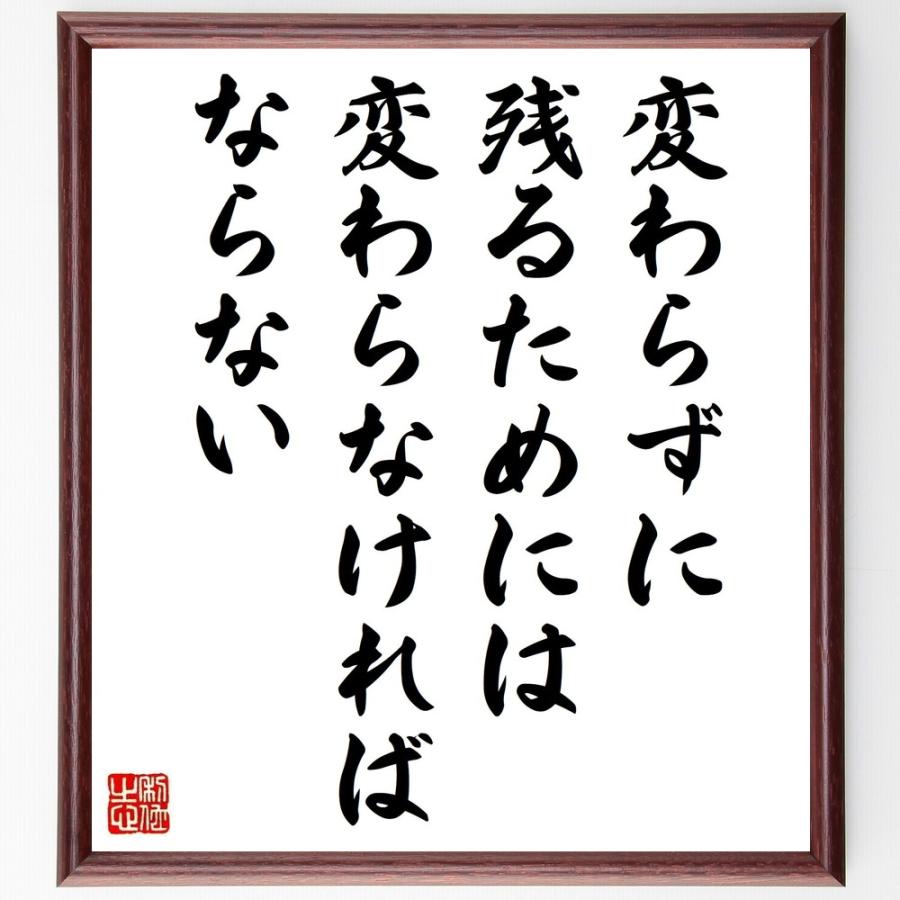 変わらずに
残るためには
変わらなければ
ならない